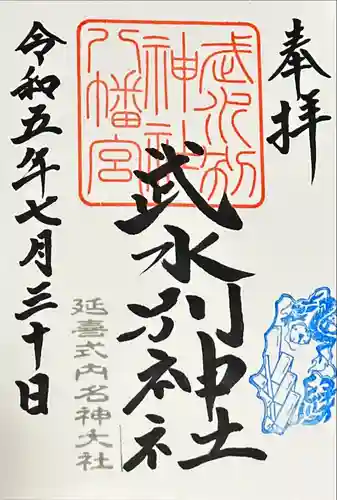 奉拝
武水別
神社
八幡宮
武水別神社
延喜式内名神大社
令和五年七月三十日